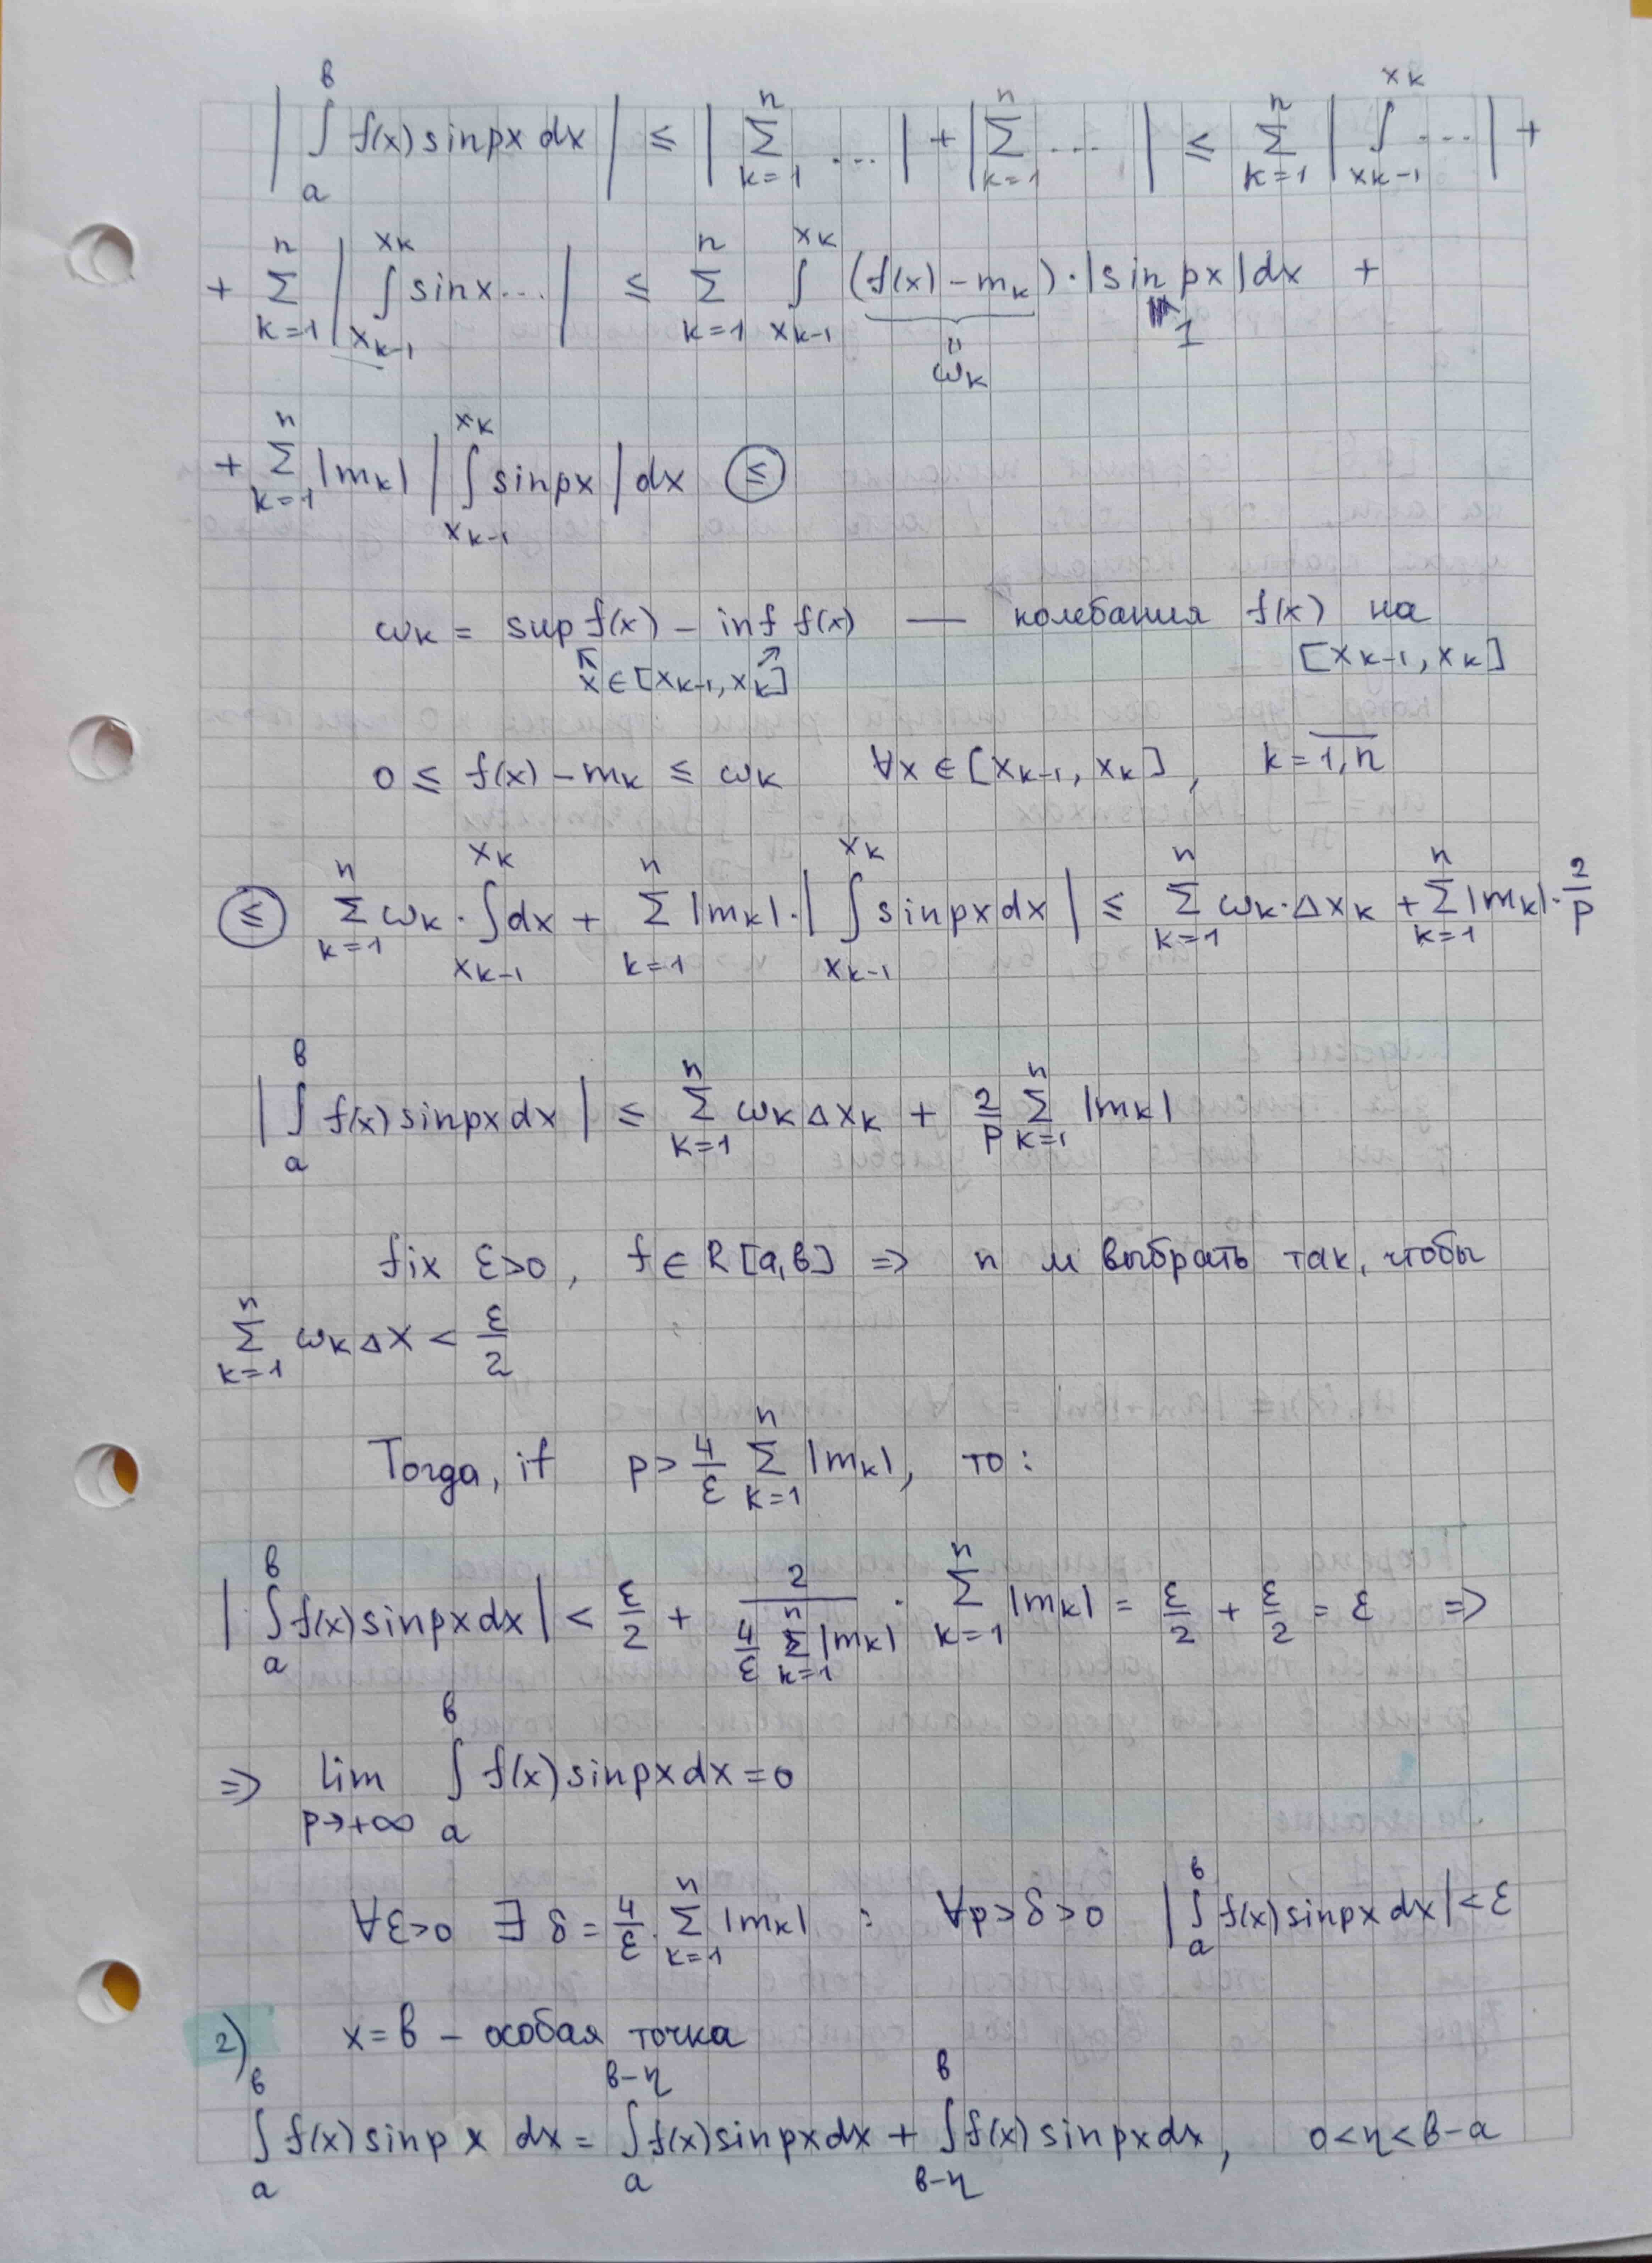 | ∫_a^b f(x) sin px dx | ≤ | Σ_{k=1}^n ... | + | Σ_{k=1}^n ... | ≤ Σ_{k=1}^n | ∫_{x_{k-1}}^{x_k} ... | +
+ Σ_{k=1}^n | ∫_{x_{k-1}}^{x_k} sin x ... | ≤ Σ_{k=1}^n ∫_{x_{k-1}}^{x_k} (f(x) - m_k) · |sin px| dx +
ω_k 1
+ Σ_{k=1}^n |m_k| | ∫_{x_{k-1}}^{x_k} sin px | dx ≤
ω_k = sup f(x) - inf f(x) — колебания f(x) на
x ∈ [x_{k-1}, x_k] [x_{k-1}, x_k]
0 ≤ f(x) - m_k ≤ ω_k ∀x ∈ [x_{k-1}, x_k], k = \overline{1, n}
≤ Σ_{k=1}^n ω_k · ∫_{x_{k-1}}^{x_k} dx + Σ_{k=1}^n |m_k| · | ∫_{x_{k-1}}^{x_k} sin px dx | ≤ Σ_{k=1}^n ω_k · Δx_k + Σ_{k=1}^n |m_k| · 2/p
| ∫_a^b f(x) sin px dx | ≤ Σ_{k=1}^n ω_k Δx_k + 2/p Σ_{k=1}^n |m_k|
fix ε>0, f ∈ R[a,b] ⇒ n м выбрать так, чтобы
Σ_{k=1}^n ω_k Δx < ε/2
Тогда, if p > 4/ε Σ_{k=1}^n |m_k|, то:
| ∫_a^b f(x) sin px dx | < ε/2 + 2/(4/ε Σ_{k=1}^n |m_k|) · Σ_{k=1}^n |m_k| = ε/2 + ε/2 = ε ⇒
⇒ lim_{p→+∞} ∫_a^b f(x) sin px dx = 0
∀ε>0 ∃ δ = 4/ε · Σ_{k=1}^n |m_k| : ∀p > δ > 0 | ∫_a^b f(x) sin px dx | < ε
2) x = b - особая точка
∫_a^b f(x) sin p x dx = ∫_a^{b-η} f(x) sin px dx + ∫_{b-η}^b f(x) sin px dx, 0 < η < b - a